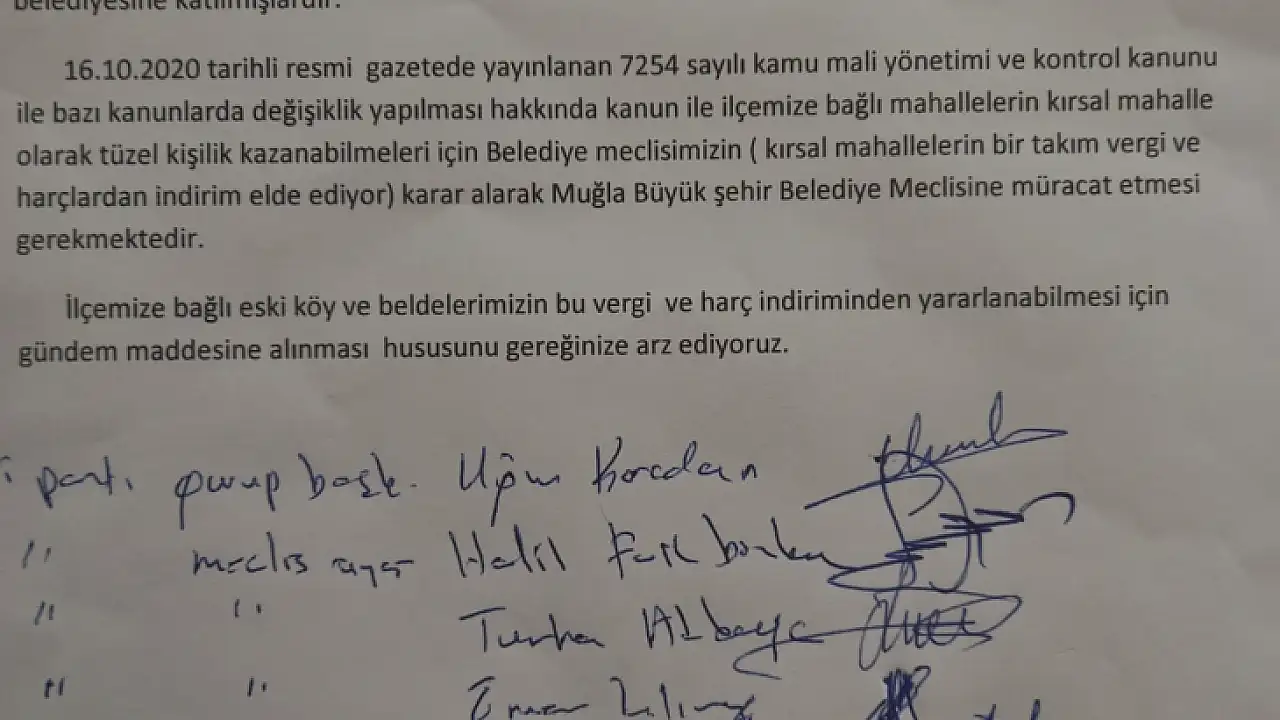 belediyesine katılmışlardır.
16.10.2020 tarihli resmi gazetede yayınlanan 7254 sayılı kamu mali yönetimi ve kontrol kanunu
ile bazı kanunlarda değişiklik yapılması hakkında kanun ile ilçemize bağlı mahallelerin kırsal mahalle
olarak tüzel kişilik kazanabilmeleri için Belediye meclisimizin ( kırsal mahallelerin bir takım vergi ve
harçlardan indirim elde ediyor) karar alarak Muğla Büyük şehir Belediye Meclisine müracat etmesi
gerekmektedir.
İlçemize bağlı eski köy ve beldelerimizin bu vergi ve harç indiriminden yararlanabilmesi için
gündem maddesine alınması hususunu gereğinize arz ediyoruz.
parti gurup başk.
" meclis üyesi Halil
" " Turhan
" "